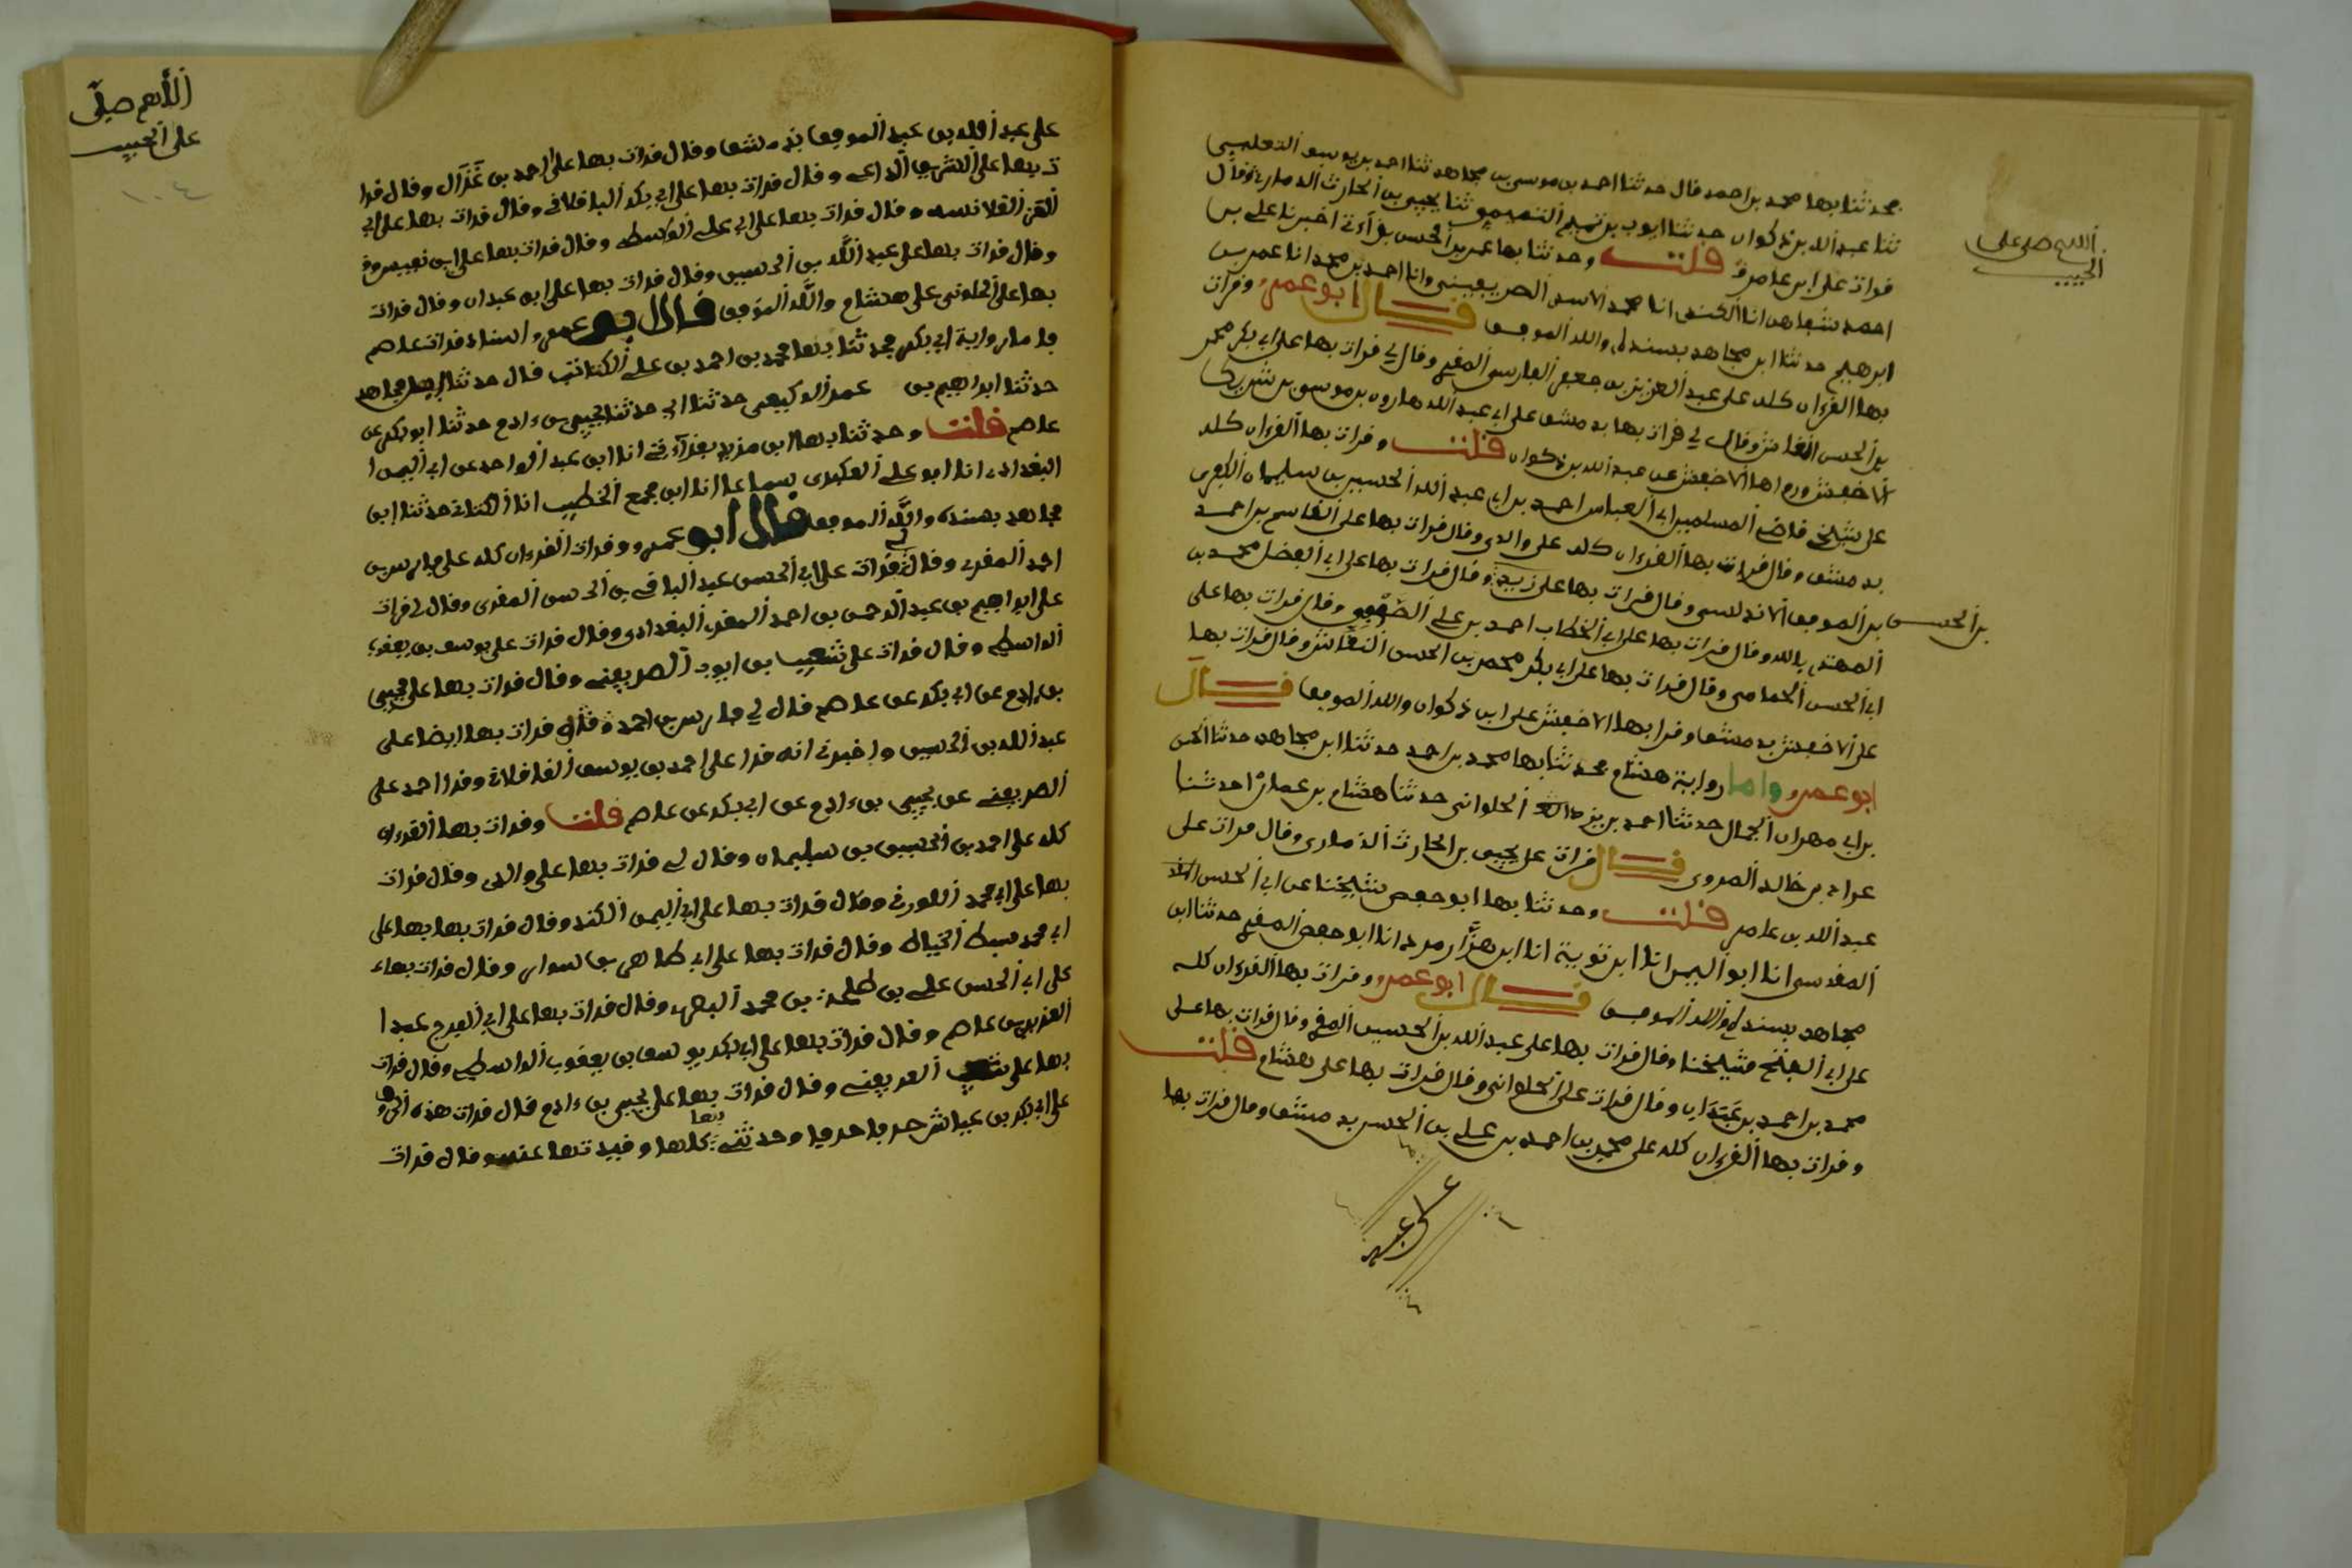 محدثنا بها محمد بن احمد قال حدثنا احمد بن موسى بن مجاهد ثنا احمد بن يوسف التغلبي
ثنا عبد الله بن ذكوان حدثنا ايوب بن تميم التميمي ثنا يحيى بن الحارث الذماري وقال
قرات على ابن عامر قلت وحدثنا بها عمر بن الحسن بقرآءتي اخبرنا علي بن
احمد شفاها انا الكندي انا محمد الاسدي الصريفيني وانا احمد بن محمد انا عمر بن
ابرهيم حدثنا ابن مجاهد بسنده والله الموفق قال ابو عمرو وقرات
بها القرءان كله على عبد العزيز بن جعفر الفارسي المقرى وقال لي قرات بها على ابي بكر محمد
بن الحسن النقاش وقال لي قرات بها بدمشق على ابي عبد الله هارون بن موسى بن شريك
الاخفش ورواها الاخفش عن عبد الله بن ذكوان قلت وقرات بها القرءان كله
على شيخي قاضي المسلمين ابي العباس احمد بن ابي عبد الله الحسين بن سليمان الكفري
بدمشق وقال قرات بها القرءان كله على والدي وقال قرات بها على القاسم بن احمد
بن الموفق الاندلسي وقال قرات بها على زيد وقال قرات بها على ابي الفضل محمد بن
المهتدي بالله وقال قرات بها على ابي الخطاب احمد بن علي الصوفي وقال قرات بها على
ابي الحسن الحمامي وقال قرات بها على ابي بكر محمد بن الحسن النقاش وقال قرات بها
على الاخفش بدمشق وقرا بها الاخفش على ابن ذكوان والله الموفق قال
ابو عمرو واما رواية هشام محدثنا بها محمد بن احمد حدثنا ابن مجاهد حدثنا الحسن
بن ابي مهران الجمال حدثنا احمد بن يزيد الحلواني حدثنا هشام بن عمار حدثنا
عراك بن خالد المروي قال قرات على يحيى بن الحارث الذماري وقال قرات على
عبد الله بن عامر قلت وحدثنا بها ابو حفص شيخنا عن ابي الحسن
المقدسي انا ابو اليمن انا ابن توبة انا ابن هزارمرد انا ابو حفص المقرى حدثنا ابن
مجاهد بسنده والله الموفق قال ابو عمرو وقرات بها القرءان كله
على ابي الفتح شيخنا وقال قرات بها على عبد الله بن الحسين المقرى وقال قرات بها على
محمد بن احمد بن عبدان وقال قرات على الحلواني وقال قرات بها على هشام قلت
وقرات بها القرءان كله على محمد بن احمد بن علي بن الحسن بدمشق وقال قرات بها
اللهم صل على
الحبيب
بن الحسن
على عبد
على عبد الله بن عبد الموفق بدمشق وقال قرات بها على احمد بن غزال وقال قرا
ت بها على الشريف الداعي وقال قرات بها على ابي بكر الباقلاني وقال قرات بها على ابي
العز القلانسي وقال قرات بها على ابي علي الواسطي وقال قرات بها على ابن
وقال قرات بها على عبد الله بن الحسين وقال قرات بها على ابن عبدان وقال قرات
بها على الحلوني على هشام والله الموفق قال ابو عمرو اسناد قراة عاصم
فاما رواية ابي بكر محدثنا بها محمد بن احمد بن علي الكتاتب قال حدثنا ابن مجاهد
حدثنا ابراهيم بن عمر الوكيعي حدثنا ابي حدثنا يحيى بن ءادم حدثنا ابو بكر عن
عاصم قلت وحدثنا بها ابن مزيد بقرآءتي انا ابن عبد الواحد عن ابي اليمن ا
البغدادي انا ابو علي العكبري سماعا انا ابن مجمع الخطيب انا الكتاني حدثنا ابن
مجاهد بسنده والله الموفق قال ابو عمرو وقرات القرءان كله على فارس بن
احمد المقري وقال لي قرات على ابي الحسن عبد الباقي بن الحسن المقرى وقال لي قرات
على ابراهيم بن عبد الرحمن بن احمد المقرى البغدادي وقال قرات على يوسف بن يعقوب
الواسطي وقال قرات على شعيب بن ايوب الصريفيني وقال قرات بها على يحيى
بن ءادم عن ابي بكر عن عاصم قال لي فارس بن احمد وقال قرات بها ايضا على
عبد الله بن الحسين واخبرني انه قرا على احمد بن يوسف القافلاني وقرا احمد على
الصريفيني عن يحيى بن ءادم عن ابي بكر عن عاصم قلت وقرات بها القرءان
كله على احمد بن الحسين بن سليمان وقال لي قرات بها على والدي وقال قرات
بها على ابي محمد اللورقي وقال قرات بها على ابي اليمن الكندي وقال قرات بها بها على
ابي محمد سبط الخياط وقال قرات بها على ابي طاهر بن سوار وقال قرات بها
على ابي الحسن علي بن طلحة بن محمد البصري وقال قرات بها على ابي الفرج عبد ا
لعزيز بن عاصم وقال قرات بها على ابي بكر يوسف بن يعقوب الواسطي وقال قرات
بها على شعيب الصريفيني وقال قرات بها على يحيى بن ءادم قال قرات هذه الحروف
على ابي بكر بن عياش حرفا حرفا وحدثني بها كلها وقيدتها عنه وقال قرات
اللهم صلى
على الحبيب
١٠٤